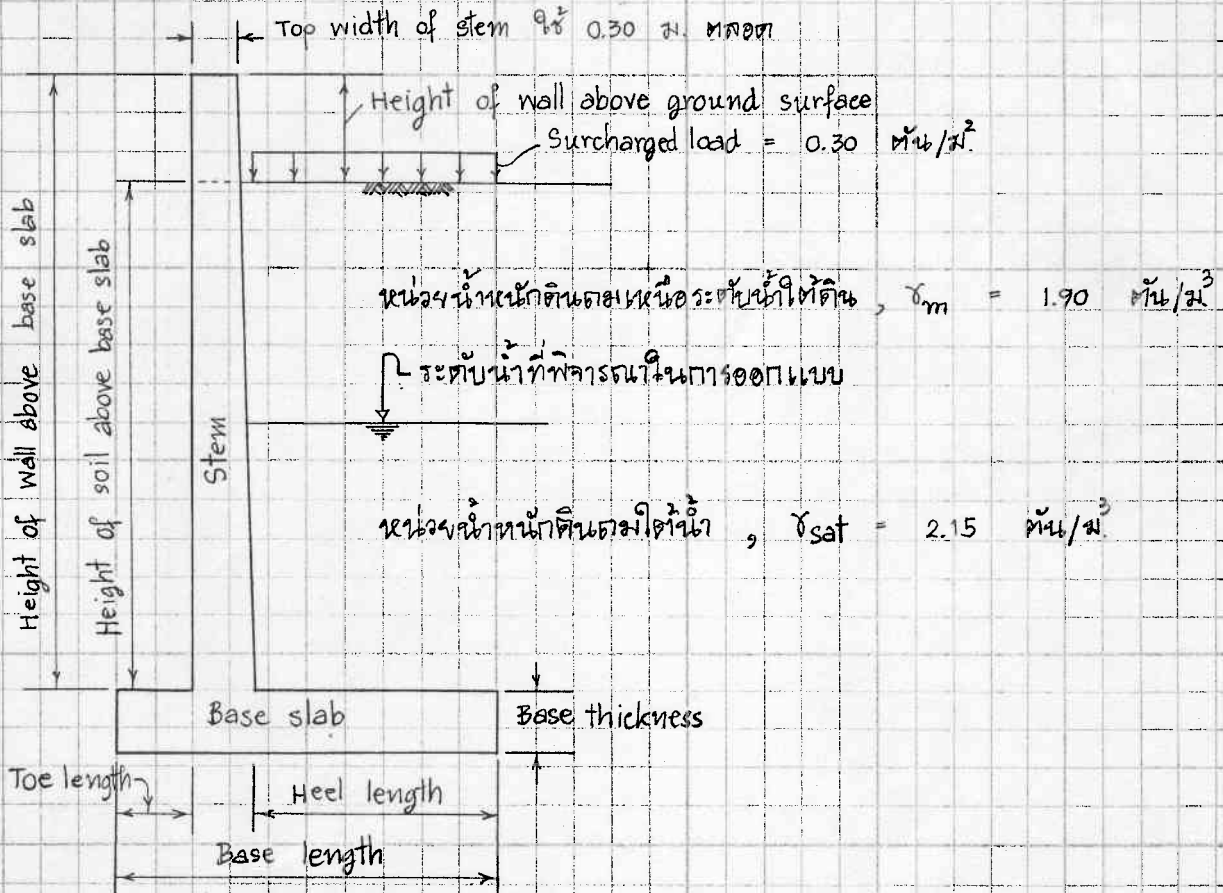 Top width of stem ใช้ 0.30 ม. ตลอด
Height of wall above ground surface
Surcharged load = 0.30 ตัน/ม.²
Height of wall above base slab
Height of soil above base slab
Stem
หน่วยน้ำหนักดินถมเหนือระดับน้ำใต้ดิน , γm = 1.90 ตัน/ม³
ระดับน้ำที่พิจารณาในการออกแบบ
หน่วยน้ำหนักดินถมใต้น้ำ , γsat = 2.15 ตัน/ม.³
Base slab
Base thickness
Toe length
Heel length
Base length